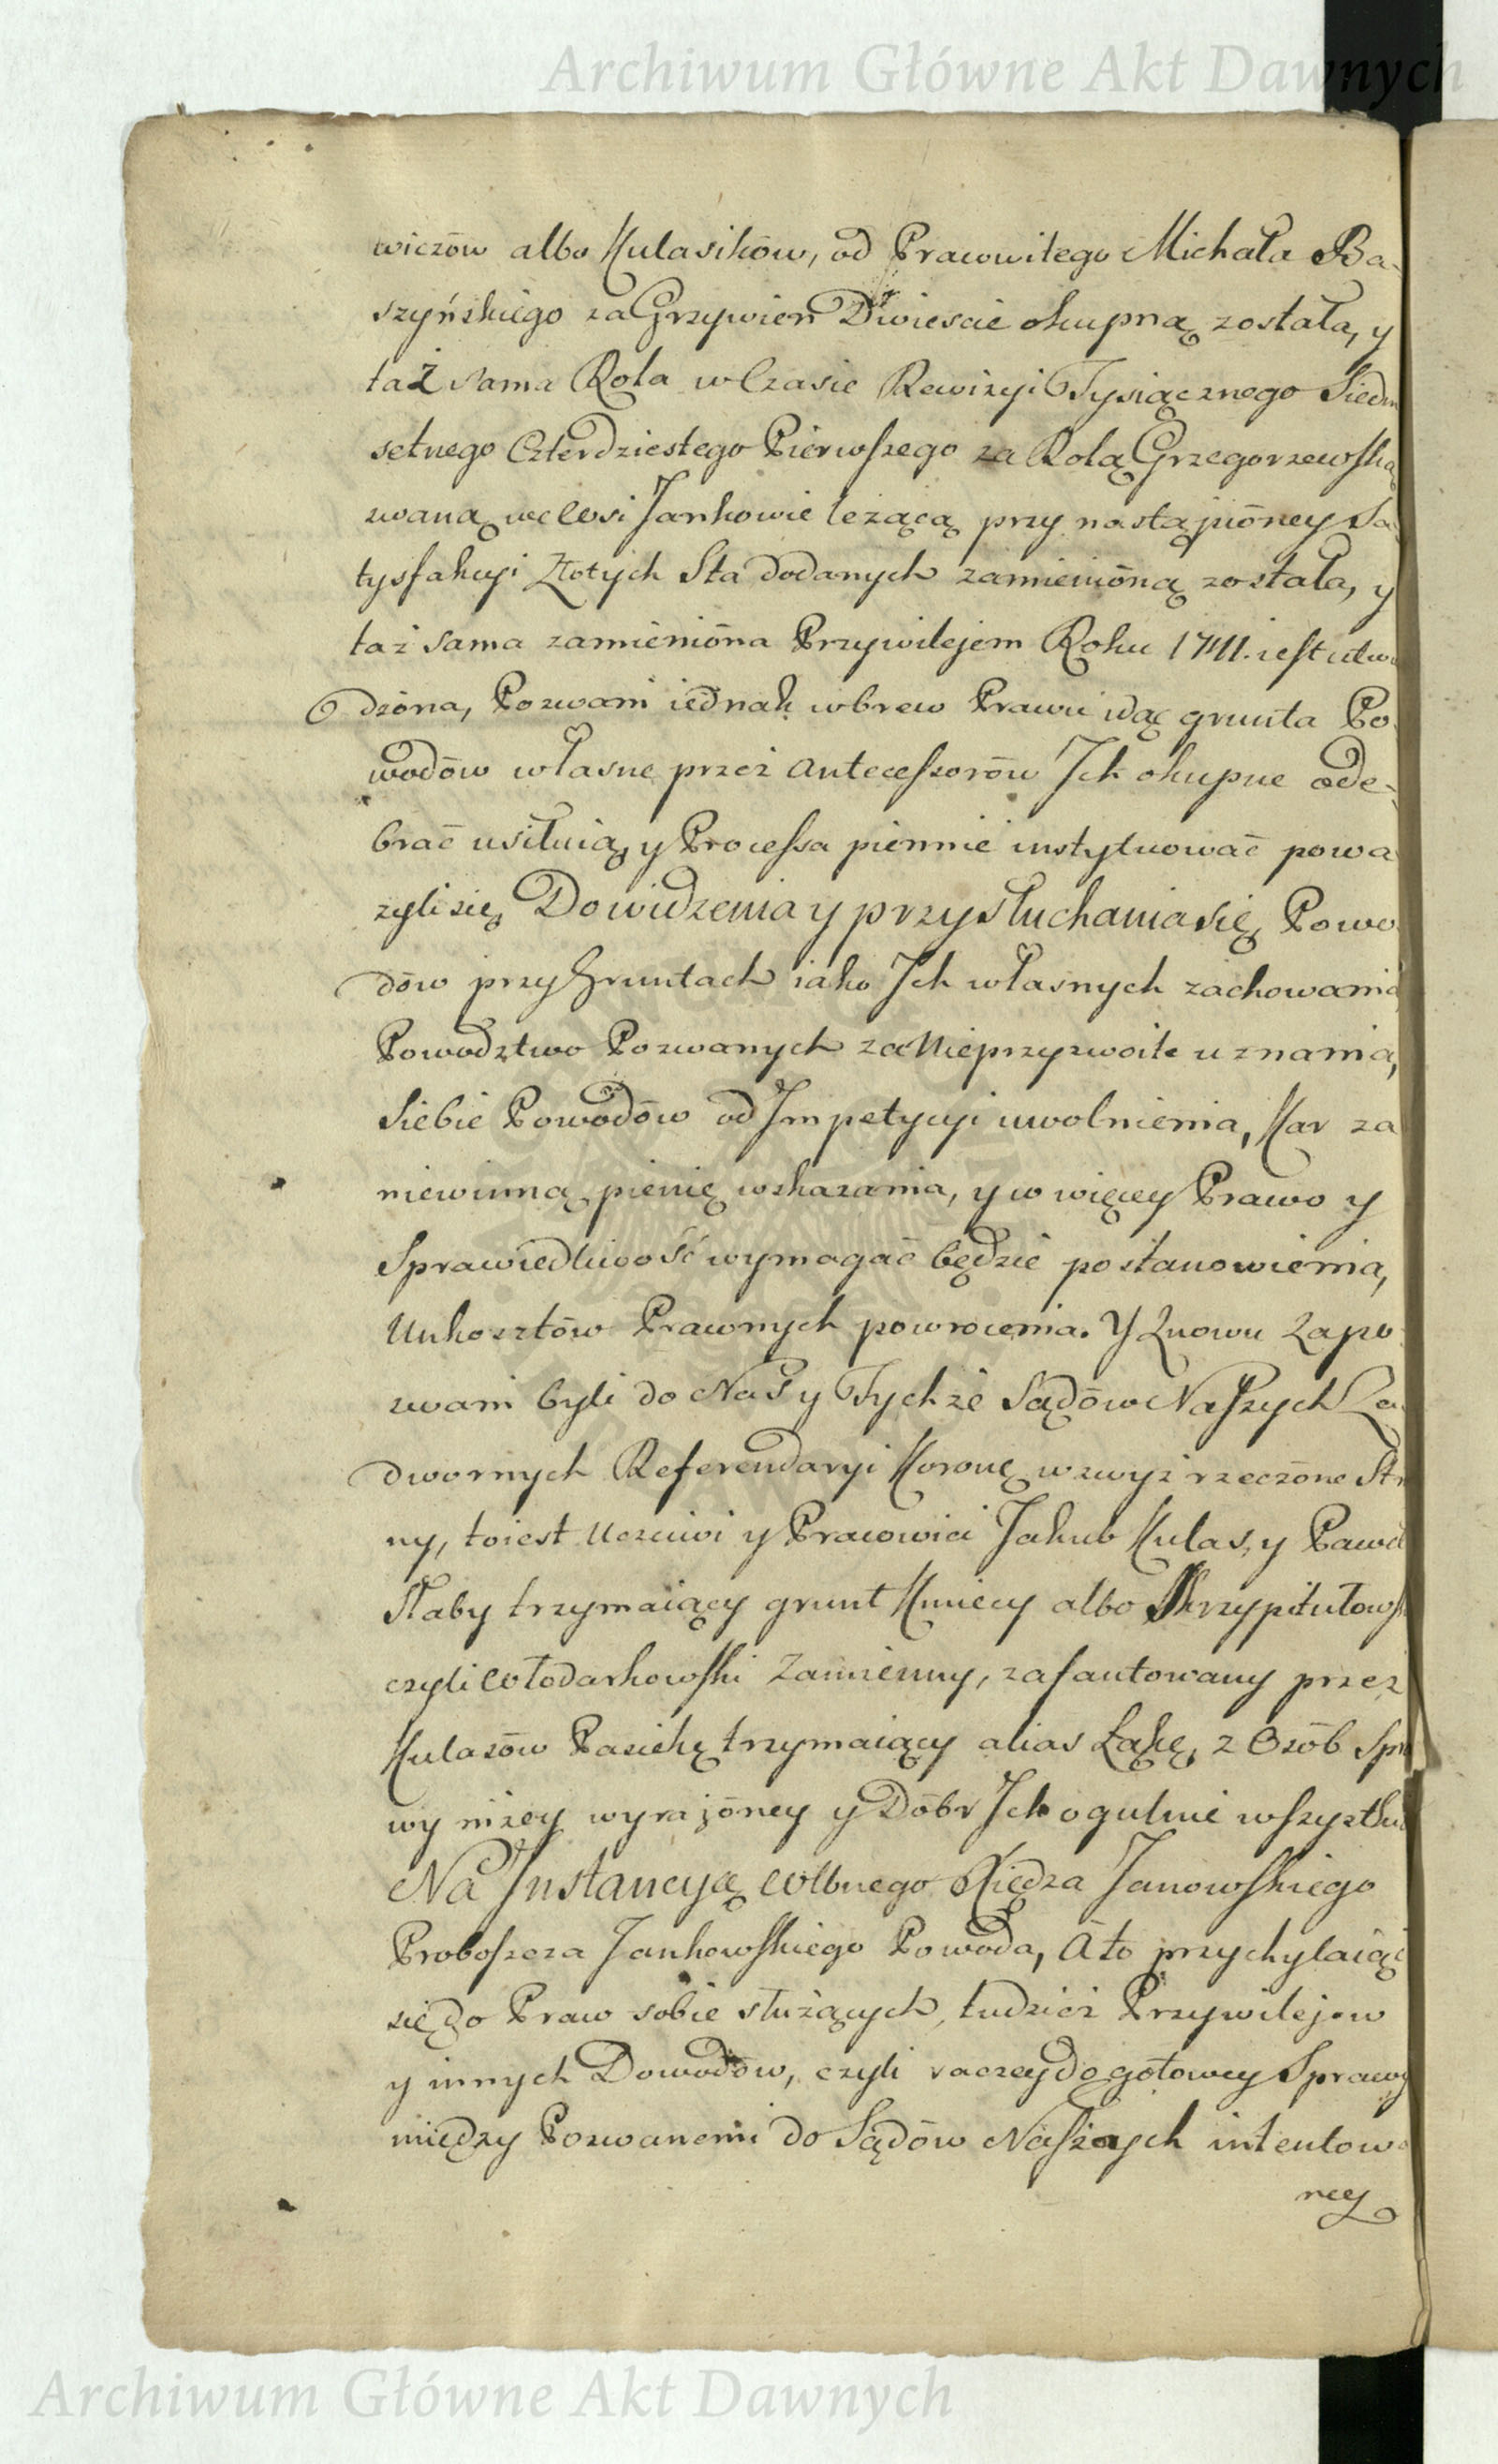 Archiwum Główne Akt Dawnych
wiczów albo Kulasików, od Pracowitego Michała Ba-
szyńskiego za Grzywien Dwiescie okupną została, y
taż sama Rola w Czasie Rewizyi Tysiącznego Siedm
setnego Czterdziestego Pierwszego za Rolą Grzegorzewską
zwaną we Wsi Jankowie leżącą przy nastąpióney Sa-
tysfakcyi Złotych Sta dodanych zamienióną została, y
taż sama zamienióna Przywilejem Roku 1741. iest utwi
dzóna, Pozwani iednak wbrew Prawu idąc grunta Po-
wodów własne przez Antecessorów Jch okupne ode-
brać usiłuią, y Processa piennie instytuować powa
zyli się, Do widzenia y przysłuchania się, Powo
dów przy Gruntach iako Jch własnych zachowania
Powodztwo Pozwanych za Nieprzyzwoite uznania,
Siebie Powodów od Jmpetycyi uwolnienia, Kar za
niewinną pienię wskazania, y w więcey Prawo y
Sprawiedliwość wymagać będzie postanowienia,
Unkosztów Prawnych powrocenia. Y Znowu Zapo
zwani byli do Nas y Tychże Sądów Naszych Za
dwornych Referendaryi Koronę, wzwyż rzeczóne Str
ny, toiest Uczciwi y Pracowici Jakub Kulas, y Paweł
Słaby trzymaiący grunt Kmiecy albo Skrzypitułows
czyli Włodarkowski Zamienny, zafantowany przez
Kulasów Pasiekę trzymaiący alias Łąkę, z Osób Spra
wy niżey wyrażóney y Dóbr Jch ogulnie wszystkie
Na Jnstancyą Wlbnego Xiędza Janowskiego
Proboszcza Jankowskiego Powoda, A to przychylaiąc
się do Praw sobie służących, tudzież Przywilejow
y innych Dowodów, czyli raczey do gotowey Sprawy
między Pozwanemi do Sądów Naszych intentowa
ney
Archiwum Główne Akt Dawnych